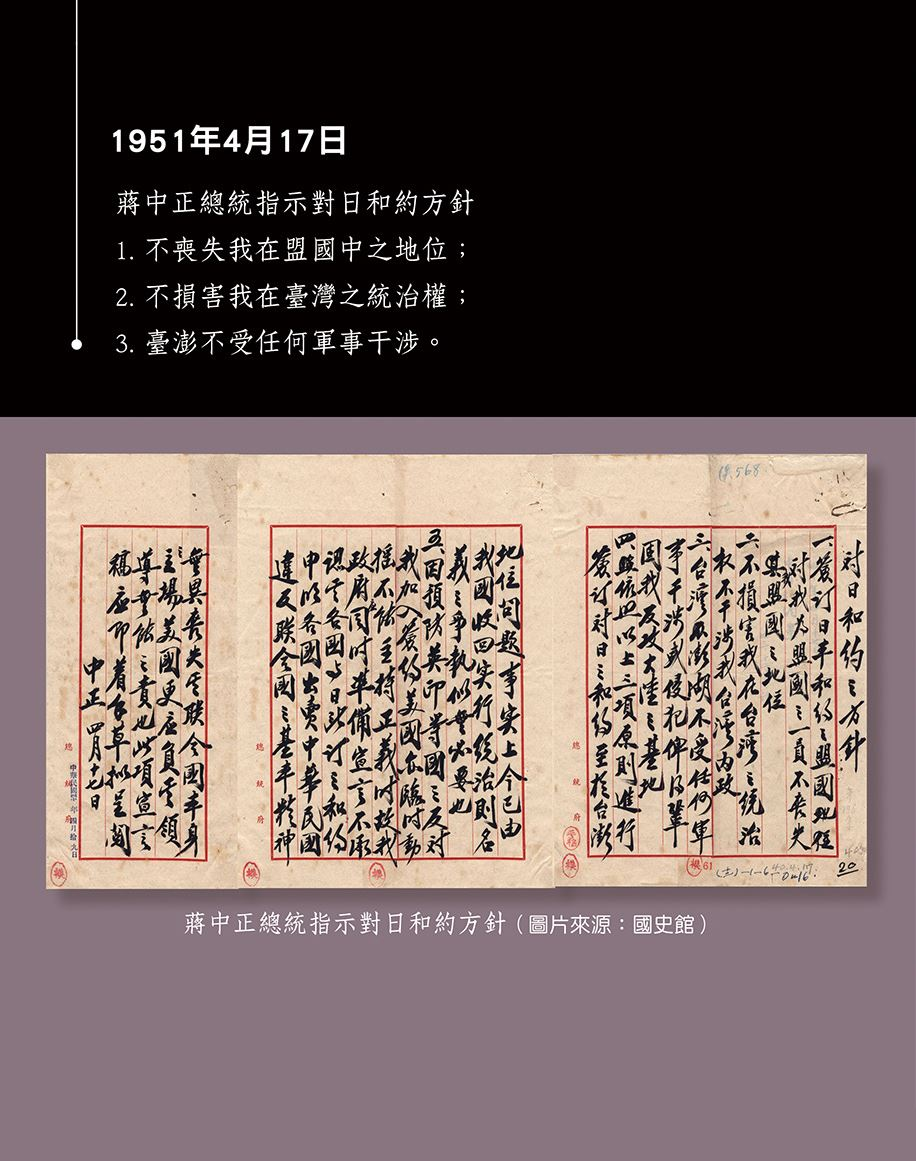 1951年4月17日
蔣中正總統指示對日和約方針
1. 不喪失我在盟國中之地位；
2. 不損害我在臺灣之統治權；
3. 臺澎不受任何軍事干涉。
568
对日和約之方針
一簽訂日本和約之盟國
对我為盟國之一員不喪失
其盟國之地位
二不損害我在台灣之統治
权不干涉我台灣內政
三台灣及澎湖不受任何軍
事干涉或侵犯俾得鞏
固我反攻大陸之基地
四以上三項原則進行
簽訂对日之和約至於台澎
地位問題事实上今已由
我國收回实行統治則名
義之爭執似無必要也
五英印等國之反对
我加入簽約美國在臨时動
搖不能主持正義时故我
政府同时準備宣言不承
認各國與日所訂之和約
申明各國出賣中華民國
違反联合國之基本精神
無異喪失其联合國本身
立場美國更应負其領
導無能之責也此項宣言
稿应即着手草擬呈閱
中正 四月十七日
總統府
總統府
總統府
61
20
蔣中正總統指示對日和約方針（圖片來源：國史館）